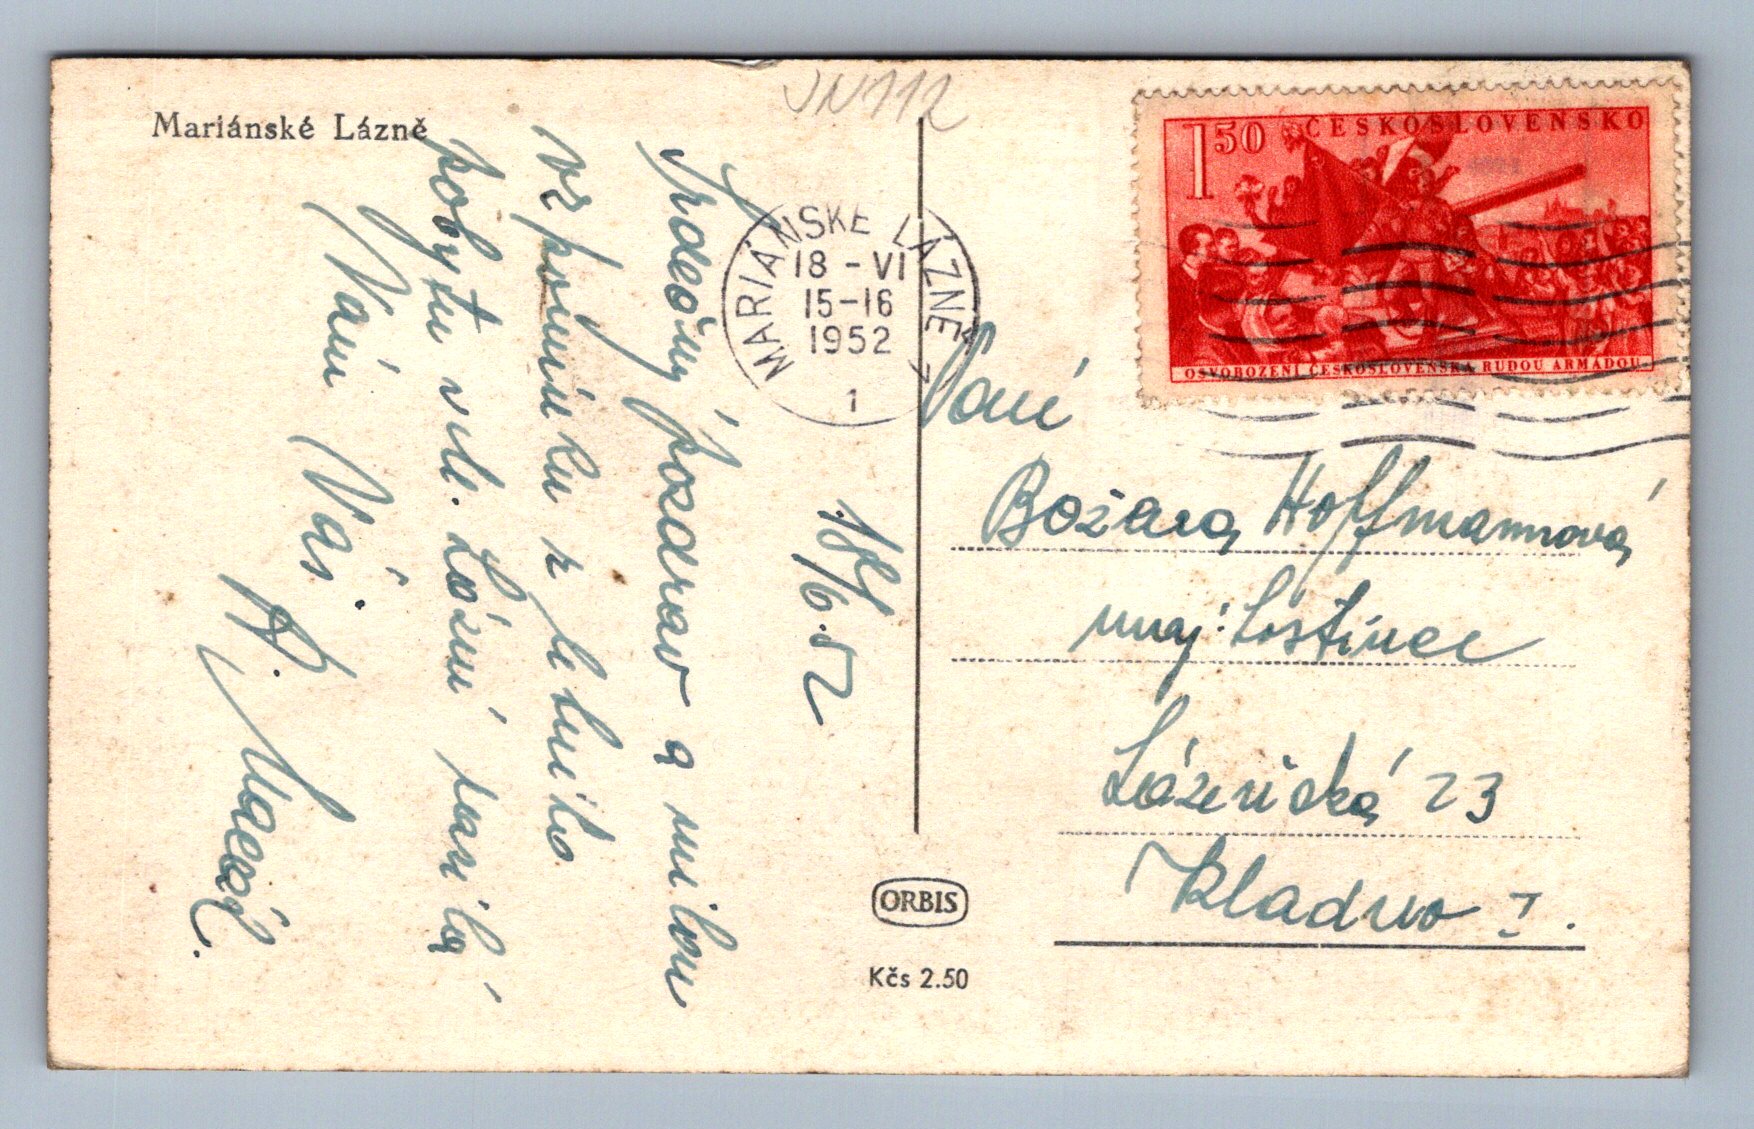 Mariánské Lázně
JN112
18/6.52
Srdečný pozdrav a milou
vzpomínku z lehkého
pobytu v
Vám Váš
MARIÁNSKÉ LÁZNĚ 7
18 - VI
15-16
1952
1
1 50 ČESKOSLOVENSKO
OSVOBOZENÍ ČESKOSLOVENSKA RUDOU ARMÁDOU
Paní
Božena Hoffmannová
maj: hostince
Lázeňská 23
Kladno I.
ORBIS
Kčs 2.50